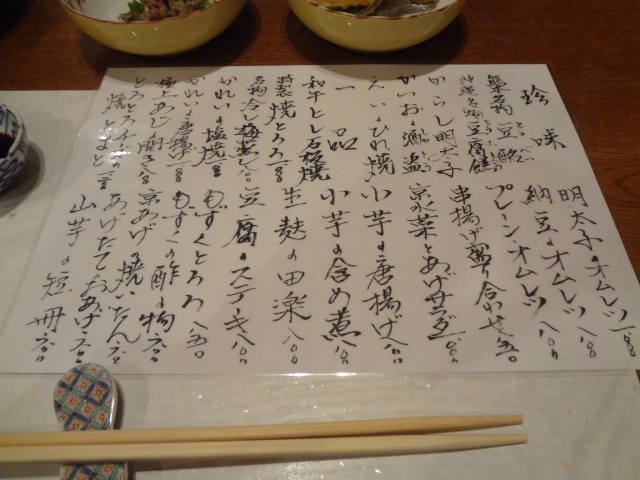 珍味
豆酩
沖縄名物豆腐餻
からし明太子
かつお酒盗
えいひれ焼
一品
和牛とし石板焼
特製焼とろろ
名物冷し梅蒸し
かれいの塩焼
かれいの唐揚げ
極上あじの開き
とろとろチーズ
焼とまと
明太子のオムレツ
納豆のオムレツ 八〇〇
プレーンオムレツ
串揚げ盛り合わせ 八五〇
京水菜とあげサラダ
小芋の唐揚げ 八〇〇
小芋の含め煮 八〇〇
生麩の田楽 八〇〇
豆腐のステーキ 八〇〇
もずくとろろ 八五〇
もずくの酢の物 六五〇
京あげの焼いたん 六五〇
あげたておあげ 六五〇
山芋の短冊 六五〇